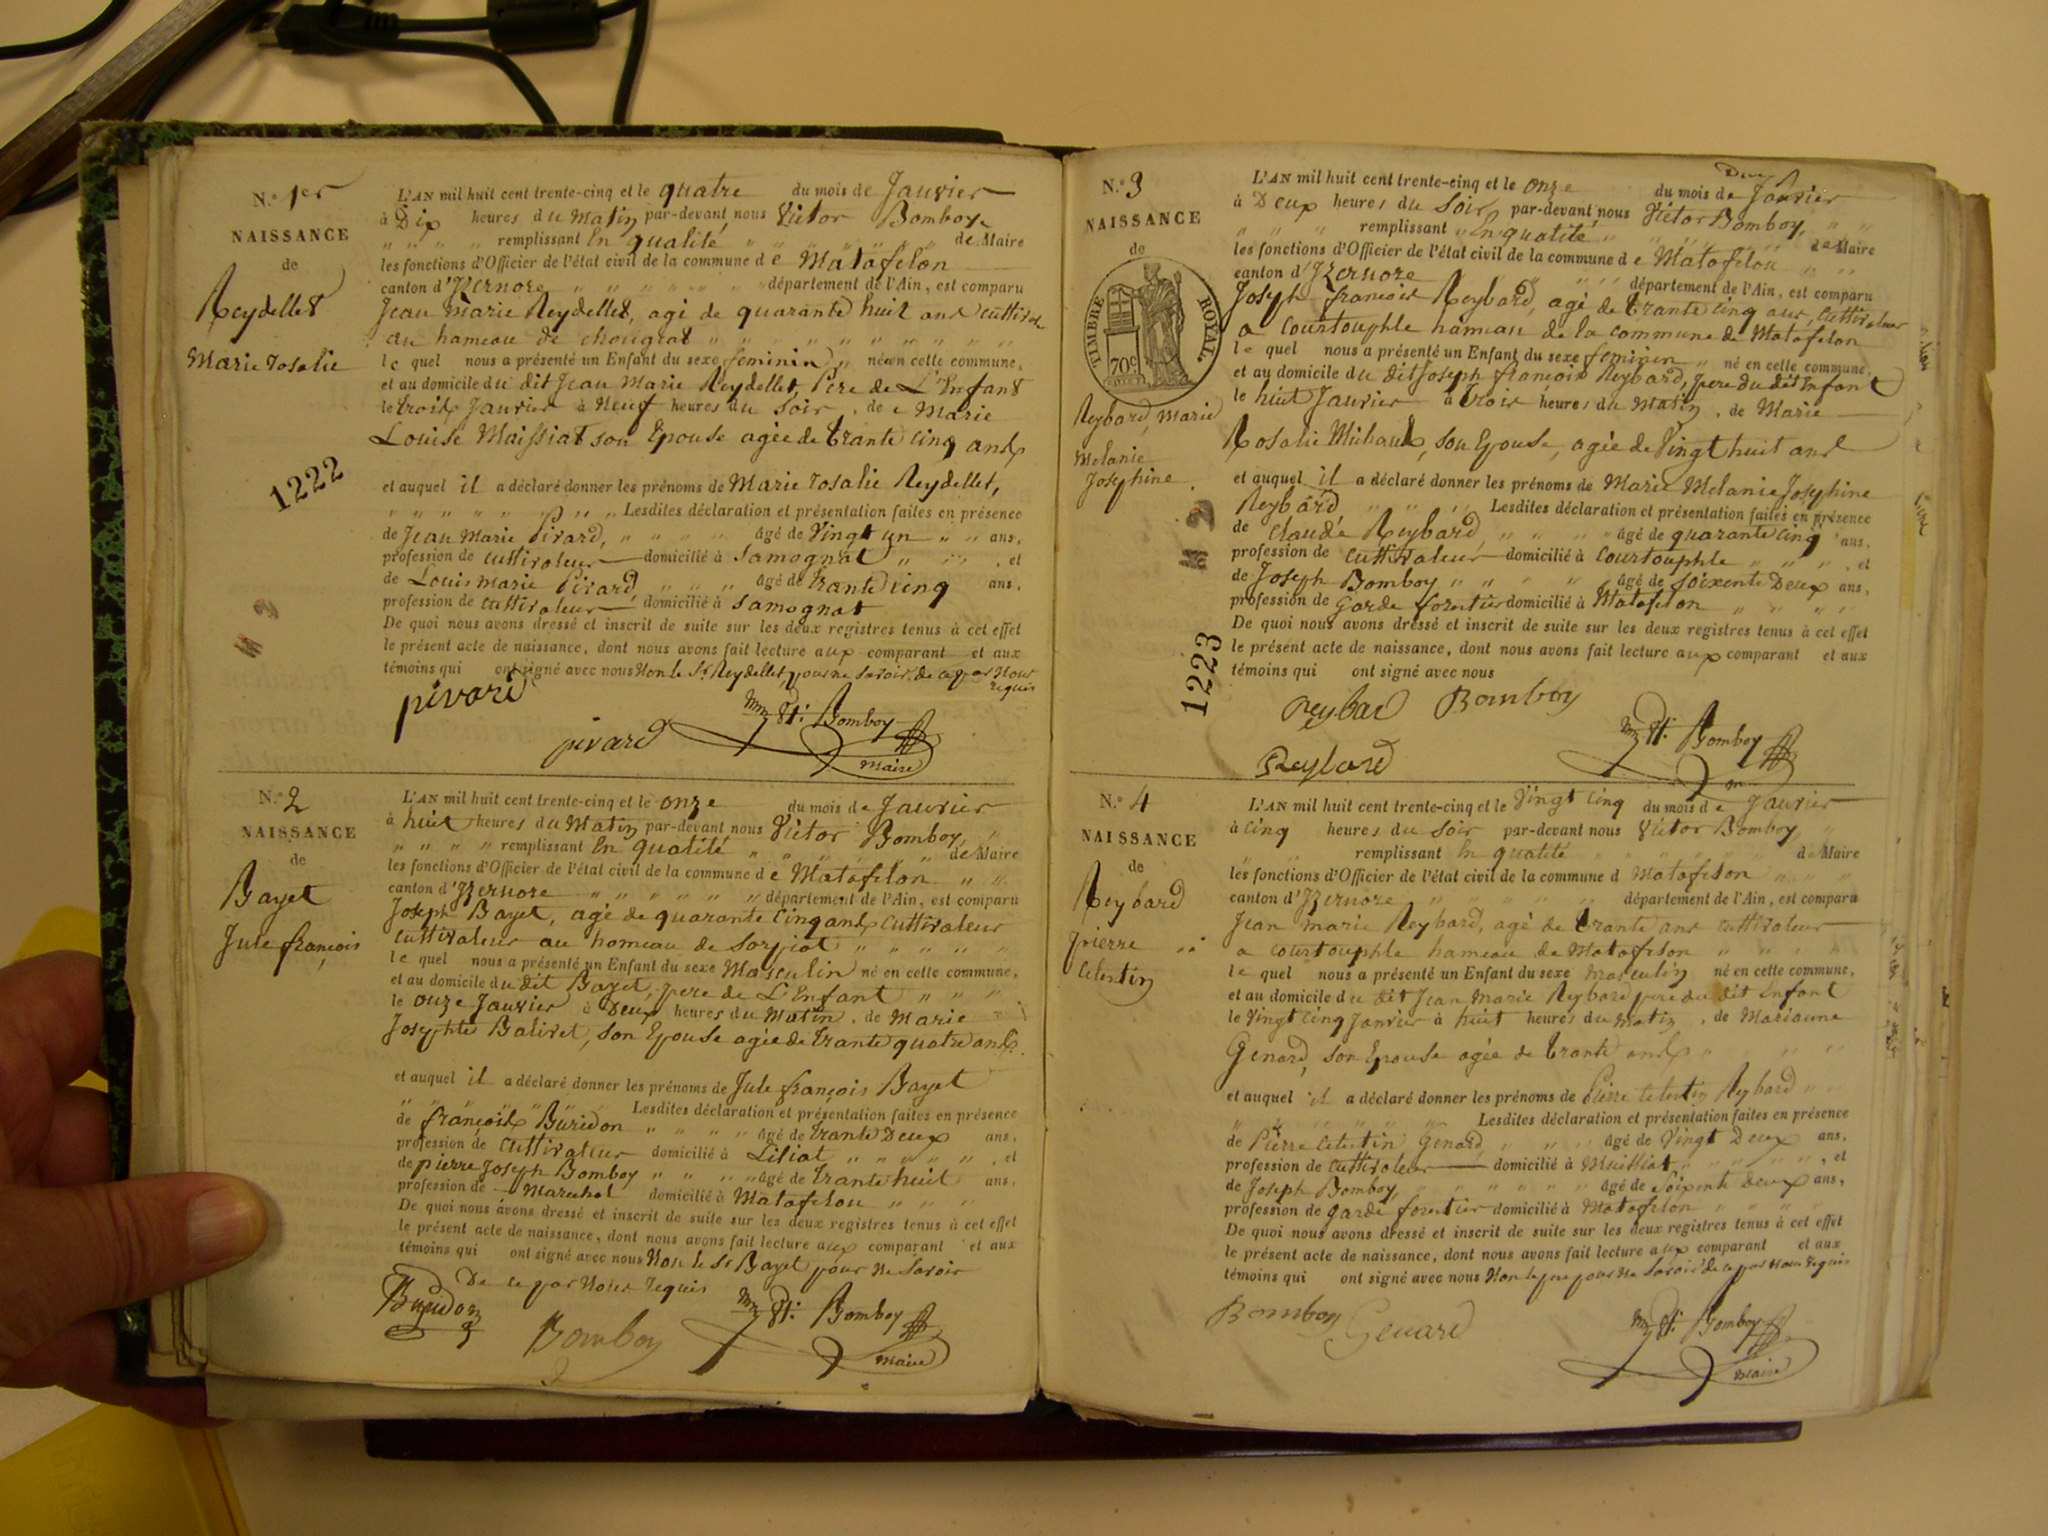 N.º 1er
NAISSANCE
de
Reydellet
Marie rosalie
1222
L'AN mil huit cent trente-cinq et le quatre du mois de Janvier
à Dix heures du Matin par-devant nous Victor Bomboy
remplissant En qualité de Maire
les fonctions d'Officier de l'état civil de la commune de Matafelon
canton d'Izernore département de l'Ain, est comparu
Jean Marie Reydellet, agé de quarante huit ans cultivateur
au hameau de chougeat
le quel nous a présenté un Enfant du sexe feminin né en cette commune,
et au domicile du dit Jean Marie Reydellet, Pere de L'Enfant
le trois Janvier à Neuf heures du Soir, de Marie
Louise Maissiat son Epouse agée de trante cinq ans
et auquel il a déclaré donner les prénoms de Marie rosalie Reydellet,
Lesdites déclaration et présentation faites en présence
de Jean Marie Pivard, âgé de Vingt un ans,
profession de cultivateur domicilié à Samognat, et
de Louis marie Pivard, âgé de trante cinq ans,
profession de cultivateur domicilié à Samognat
De quoi nous avons dressé et inscrit de suite sur les deux registres tenus à cet effet
le présent acte de naissance, dont nous avons fait lecture aux comparant et aux
témoins qui ont signé avec nous Non le Sr Reydellet, pour ne Savoir de ce par Nous
requis
pivard
pivard Bomboy
maire
N.º 2
NAISSANCE
de
Bayet
Jule françois
L'AN mil huit cent trente-cinq et le onze du mois de Janvier
à huit heures du Matin par-devant nous Victor Bomboy,
remplissant En qualité de Maire
les fonctions d'Officier de l'état civil de la commune de Matafelon
canton d'Izernore département de l'Ain, est comparu
Joseph Bayet, agé de quarante cinq ans cultivateur
cultivateur au hameau de Corpiat
le quel nous a présenté un Enfant du sexe Masculin né en cette commune,
et au domicile du dit Bayet, pere de L'Enfant
le onze Janvier à Deux heures du Matin, de Marie
Josephte Balivet, son Epouse agée de trante quatre ans
et auquel il a déclaré donner les prénoms de Jule françois Bayet
Lesdites déclaration et présentation faites en présence
de françois Buridon âgé de trante Deux ans,
profession de cultivateur domicilié à Liliat, et
de pierre Joseph Bomboy âgé de trante huit ans,
profession de Marechal domicilié à Matafelon
De quoi nous avons dressé et inscrit de suite sur les deux registres tenus à cet effet
le présent acte de naissance, dont nous avons fait lecture aux comparant et aux
témoins qui ont signé avec nous Non le Sr Bayet pour ne Savoir
De ce par Nous requis
Buridon Bomboy Bomboy
maire
N.º 3
NAISSANCE
de
TIMBRE ROYAL.
70c
Reybard, Marie
Melanie
Josephine
1223
L'AN mil huit cent trente-cinq et le onze du mois de Janvier
à Deux heures du Soir par-devant nous Victor Bomboy,
remplissant En qualité de Maire
les fonctions d'Officier de l'état civil de la commune de Matafelon
canton d'Izernore département de l'Ain, est comparu
Joseph françois Reybard, agé de trante cinq ans, cultivateur
a courtouphle hameau de la commune de Matafelon
le quel nous a présenté un Enfant du sexe feminin né en cette commune,
et au domicile du dit Joseph françois Reybard, pere du dit Enfant
le huit Janvier à trois heures du Matin, de Marie
Rosalie Michaud, son Epouse, agée de Vingt huit ans
et auquel il a déclaré donner les prénoms de Marie Melanie Josephine
Reybard Lesdites déclaration et présentation faites en présence
de Claude Reybard, âgé de quarante cinq ans,
profession de cultivateur domicilié à Courtouphle, et
de Joseph Bomboy âgé de Soixente Deux ans,
profession de Garde forestier domicilié à Matafelon
De quoi nous avons dressé et inscrit de suite sur les deux registres tenus à cet effet
le présent acte de naissance, dont nous avons fait lecture aux comparant et aux
témoins qui ont signé avec nous
reybard Bomboy
Reybard Bomboy
N.º 4
NAISSANCE
de
Reybard
pierre
Celestin
L'AN mil huit cent trente-cinq et le Vingt Cinq du mois de Janvier
à Cinq heures du Soir par-devant nous Victor Bomboy,
remplissant En qualité de Maire
les fonctions d'Officier de l'état civil de la commune d Matafelon
canton d'Izernore département de l'Ain, est comparu
Jean marie Reybard, agé de trante ans cultivateur
a courtouphle hameau de Matafelon
le quel nous a présenté un Enfant du sexe masculin né en cette commune,
et au domicile du dit Jean Marie Reybard pere du dit Enfant
le Vingt Cinq Janvier à huit heures du Matin, de Marianne
Genard, son Epouse agée de trante ans
et auquel il a déclaré donner les prénoms de Pierre Celestin Reybard
Lesdites déclaration et présentation faites en présence
de Pierre Celestin Genard, âgé de Vingt Deux ans,
profession de cultivateur domicilié à Maissiat, et
de Joseph Bomboy, âgé de Soixente Deux ans,
profession de garde forestier domicilié à Matafelon
De quoi nous avons dressé et inscrit de suite sur les deux registres tenus à cet effet
le présent acte de naissance, dont nous avons fait lecture aux comparant et aux
témoins qui ont signé avec nous Non le pere pour ne Savoir de ce par Nous requis
Bomboy Genard Bomboy
maire